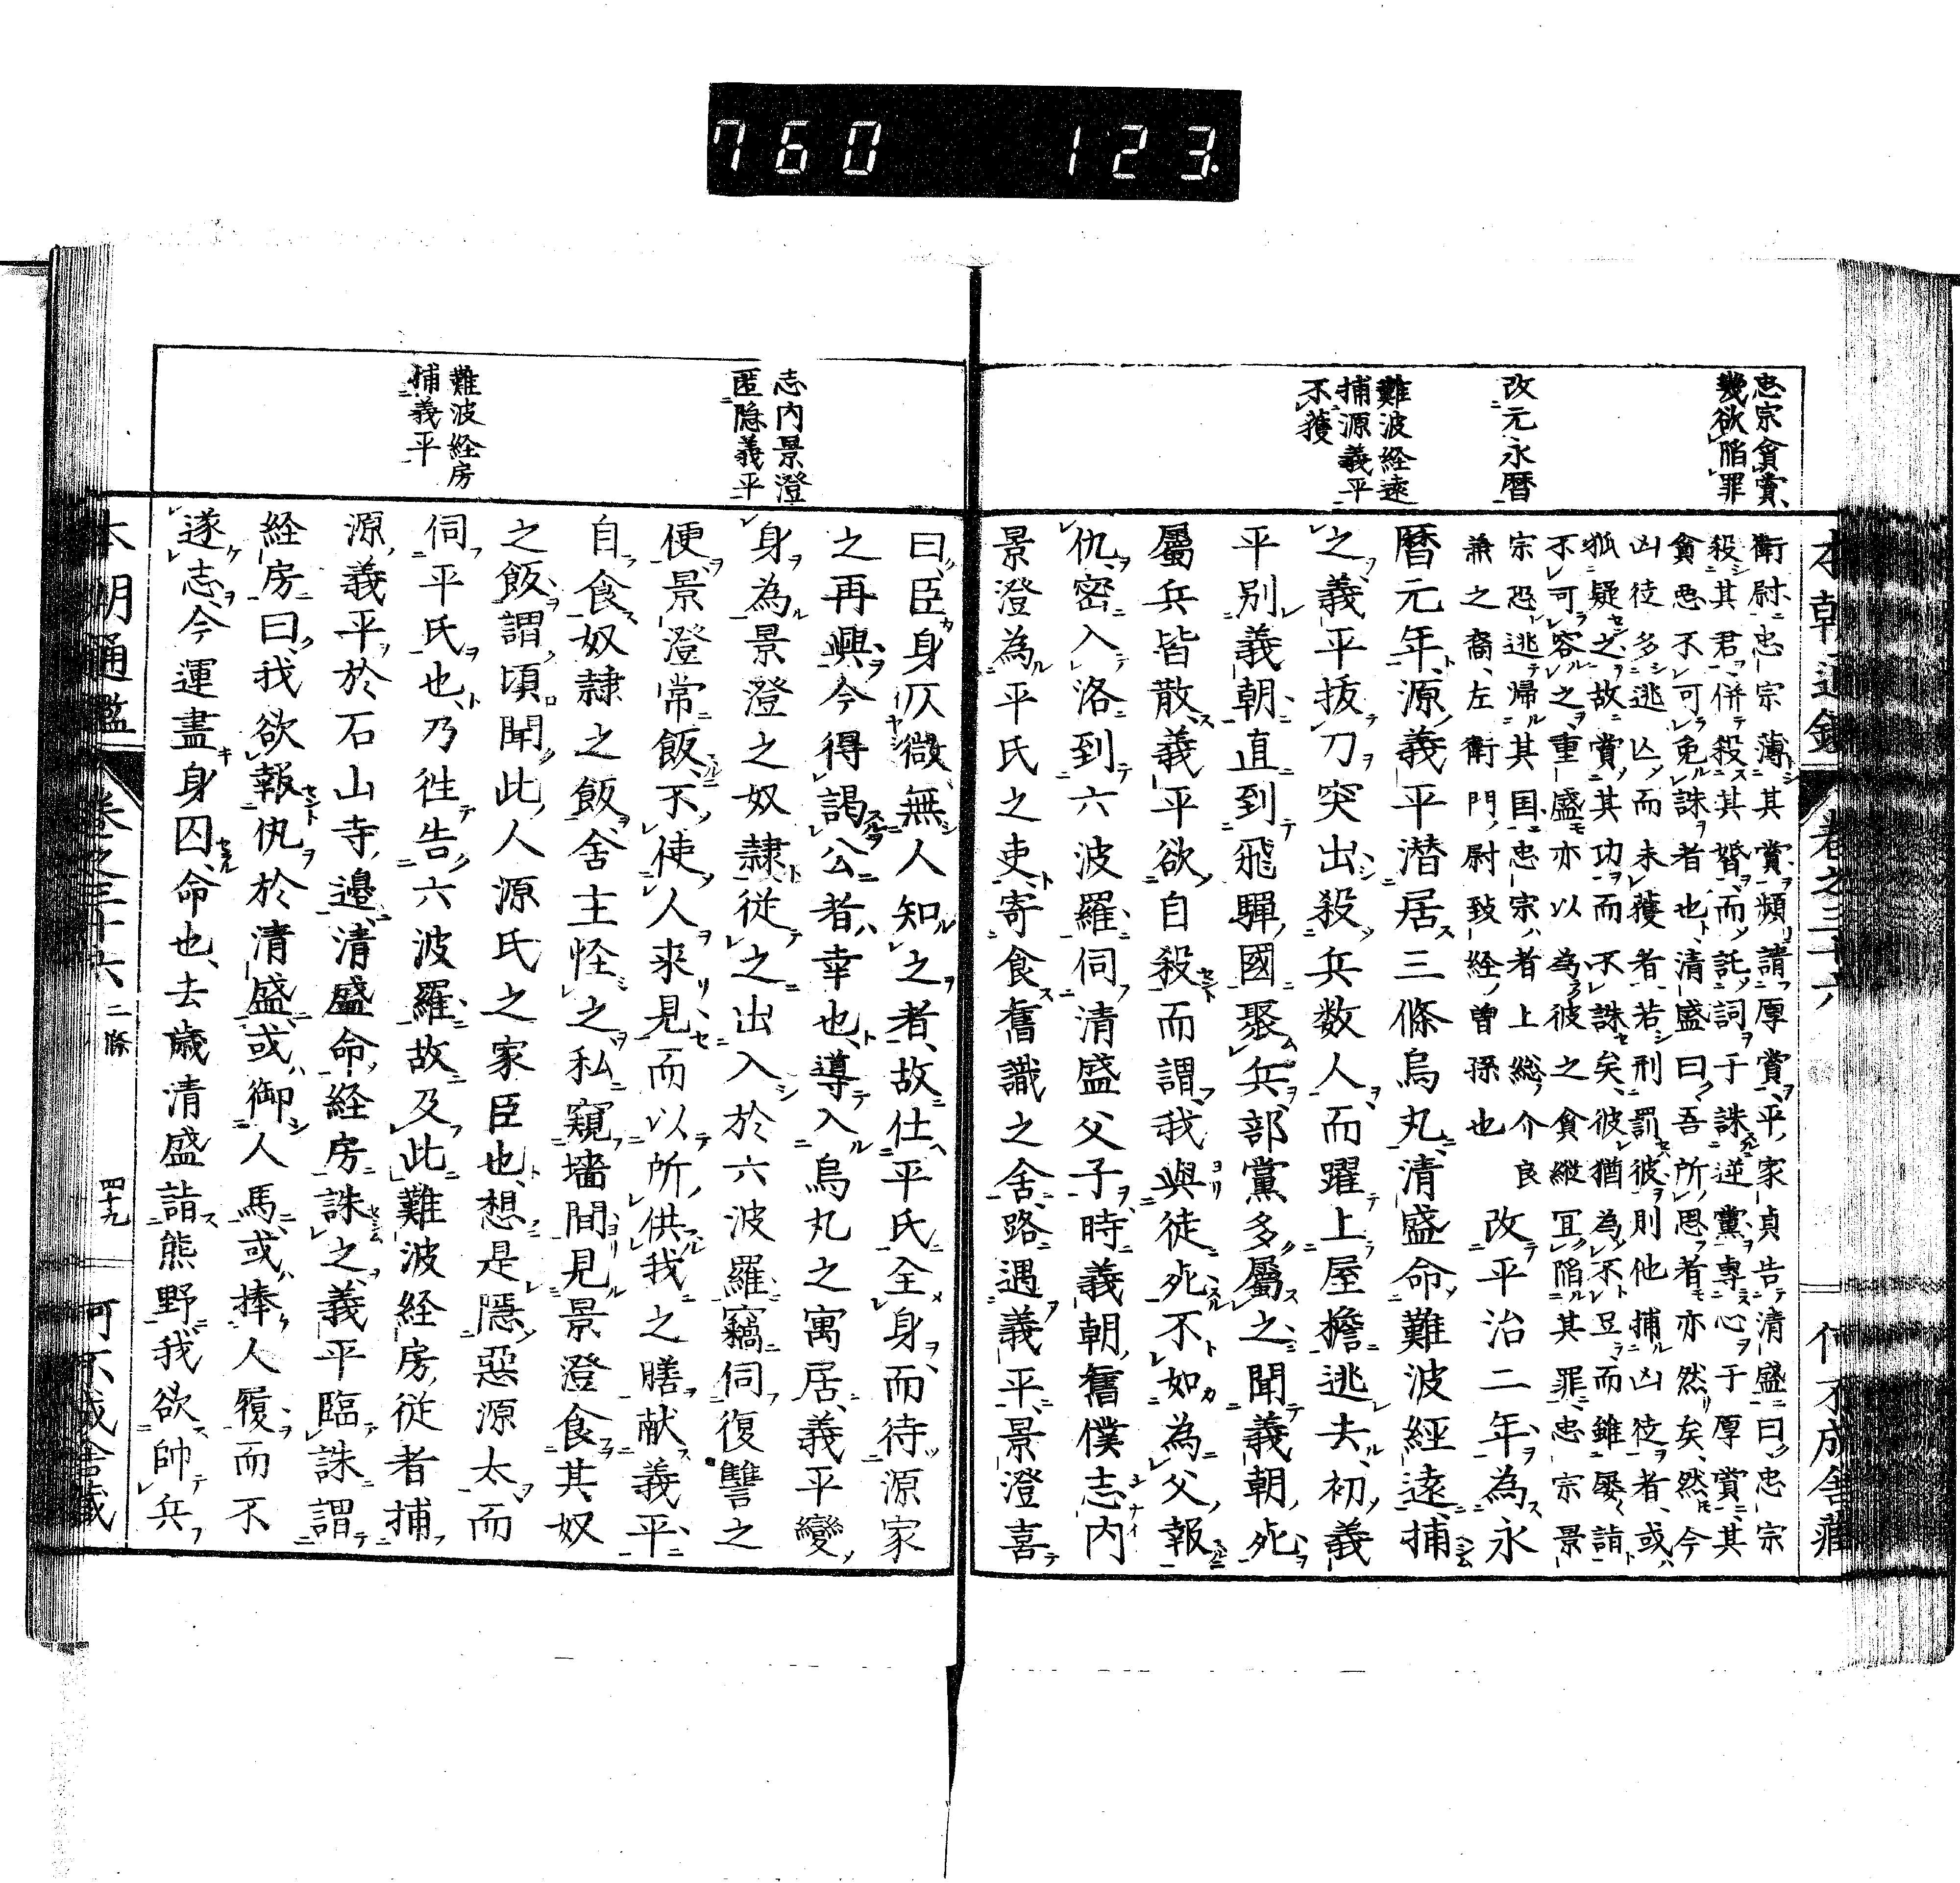 760 123
本朝通鑑 卷之三十六 何不成舎藏
忠宗貪賞、
幾欲陷罪
改元永曆
難波経遠
捕源義平
不獲
衛尉忠宗薄其賞頻請厚賞、平家貞告清盛曰忠宗
殺其君、併殺其婿、而託詞于誅逆黨、專心于厚賞、其
貪惡不可免誅者也、清盛曰、吾所思者亦然矣、然今
凶徒多逃亾、而未獲者、若刑罰彼則他捕凶徒者、或
狐疑之、故賞其功而不誅矣、彼猶為不足、而雖屡請
不可容之、重盛亦以為彼之貪縦冝陷其罪、忠宗景
宗恐逃帰其国、忠宗者上総介良
兼之裔、左衛門尉致経曽孫也
改平治二年為永
曆元年、源義平潜居三條烏丸、清盛命難波經遠捕
之、義平抜刀突出殺兵数人、而躍上屋擔逃去、初義
平別義朝、直到飛驒國聚兵、部黨多屬之、聞義朝死
屬兵皆散、義平欲自殺而謂、我與徒死不如為父報
仇、密入洛到六波羅伺清盛父子、時義朝舊僕志内
景澄為平氏之吏、寄食舊識之舍、路遇義平、景澄喜
志内景澄
匿隠義平
難波経房
捕義平
曰、臣身仄微、無人知之者、故仕平氏全身、而待源家
之再興、今得謁公者、幸也、導入烏丸之寓居、義平變
身為景澄之奴隷、従之出入於六波羅、竊伺復讐之
便、景澄常飯、不使人来見、而以所供我之膳献義平、
自食奴隷之飯、舍主怪之私窺墻間見景澄食其奴
之飯、謂頃聞此人源氏之家臣也、想是隱惡源太、而
伺平氏也、乃徃告六波羅、故及此、難波経房従者捕
源義平於石山寺邉、清盛命経房誅之、義平臨誅謂
経房曰、我欲報仇於清盛、或御人馬、或捧人履、而不
遂志、今運盡身囚、命也、去歳清盛詣熊野、我欲帥兵
本朝通鑑 卷之三十六 二條 四十九 何不成舎藏